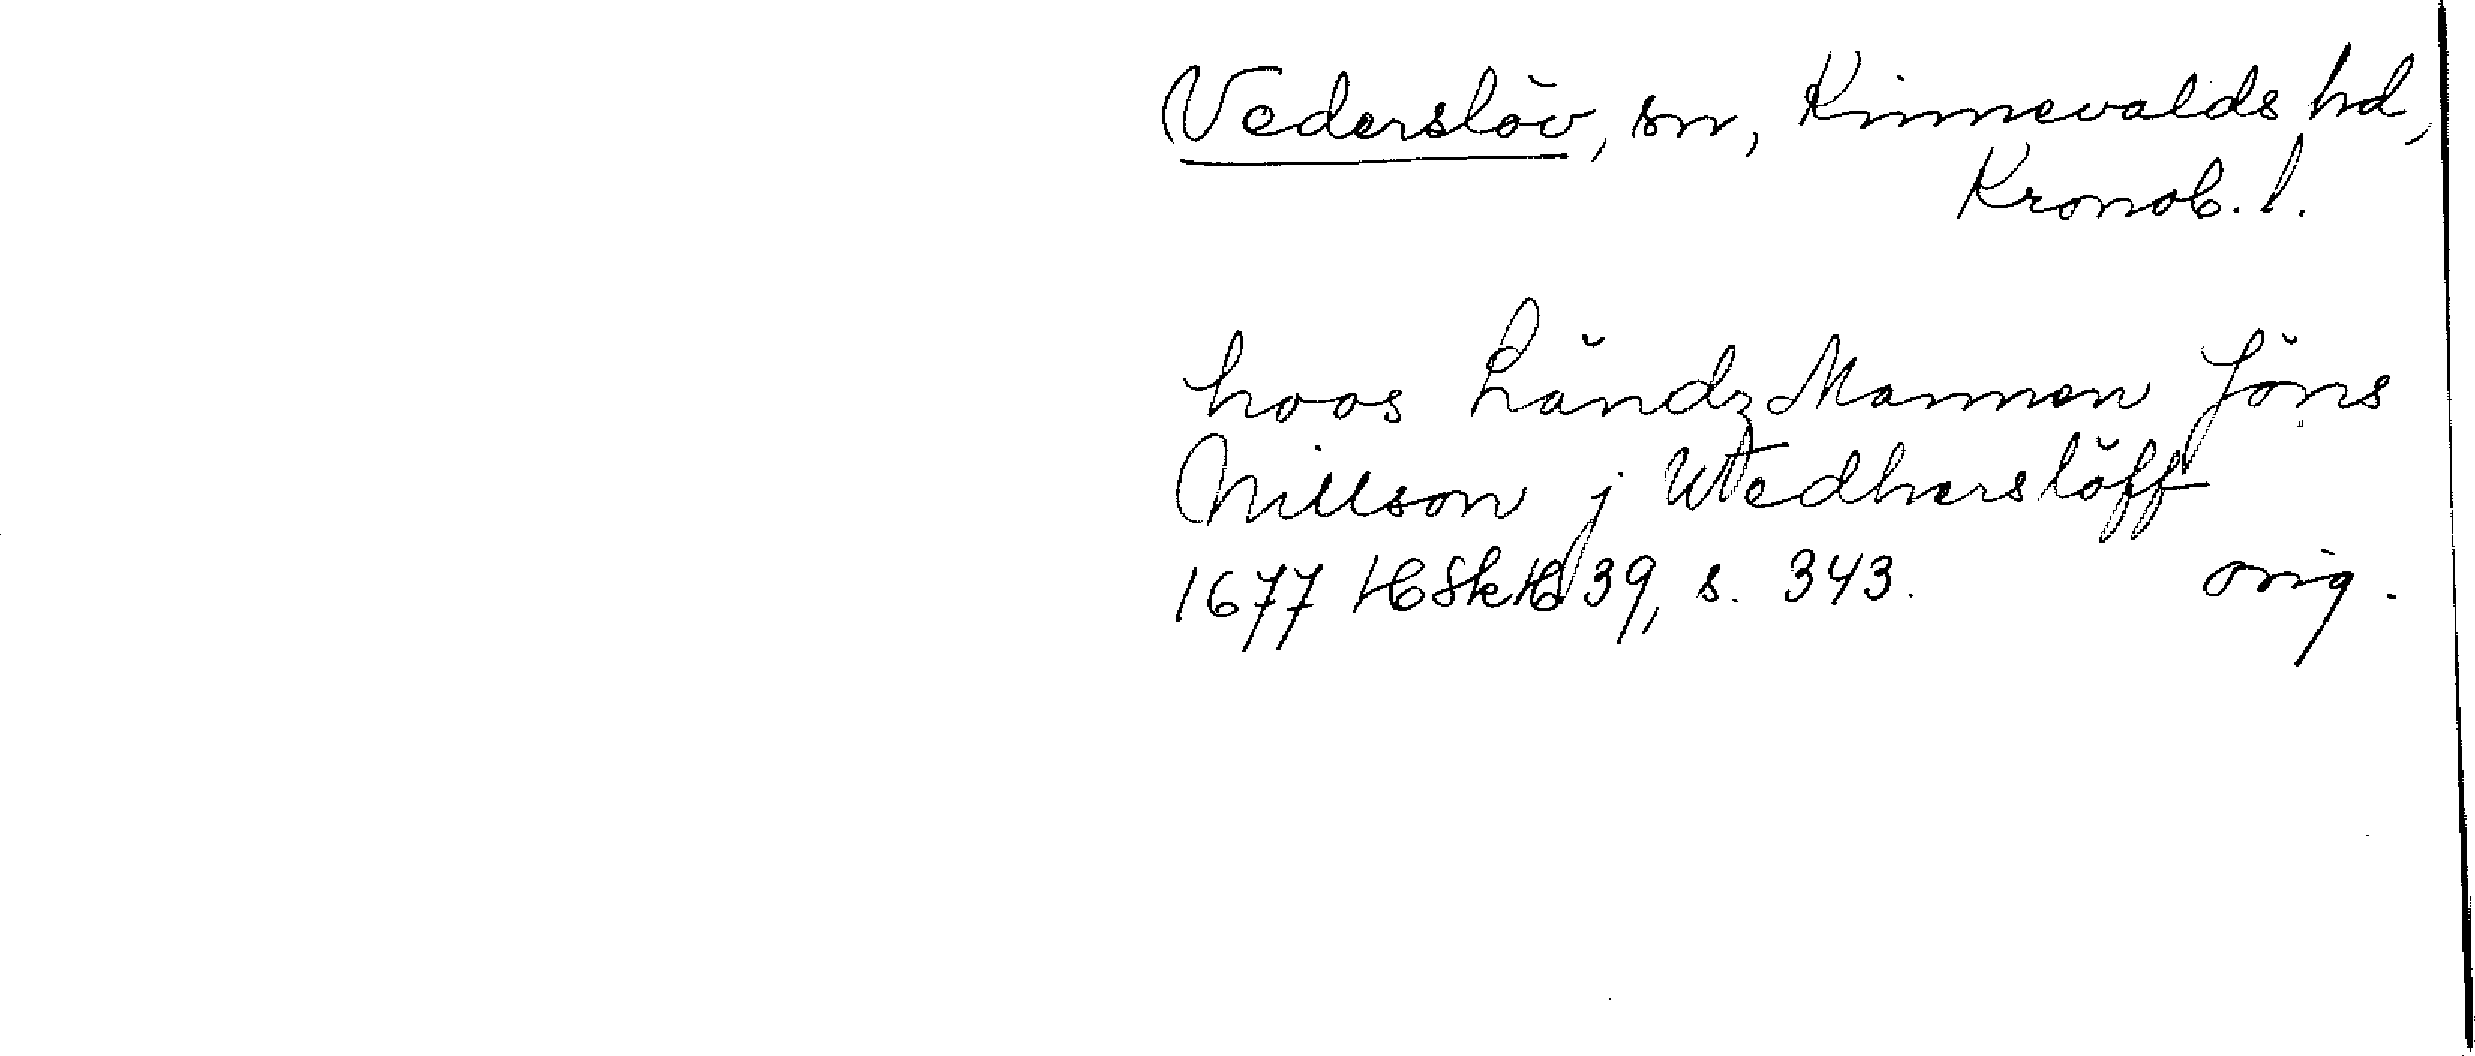 Vederslöv, sn, Kinnevalds hd,
Kronob. l.
hoos Ländz Mannen Jöns
Nillson j Wedherslöff
1677 HSkH 39, s. 343. orig.